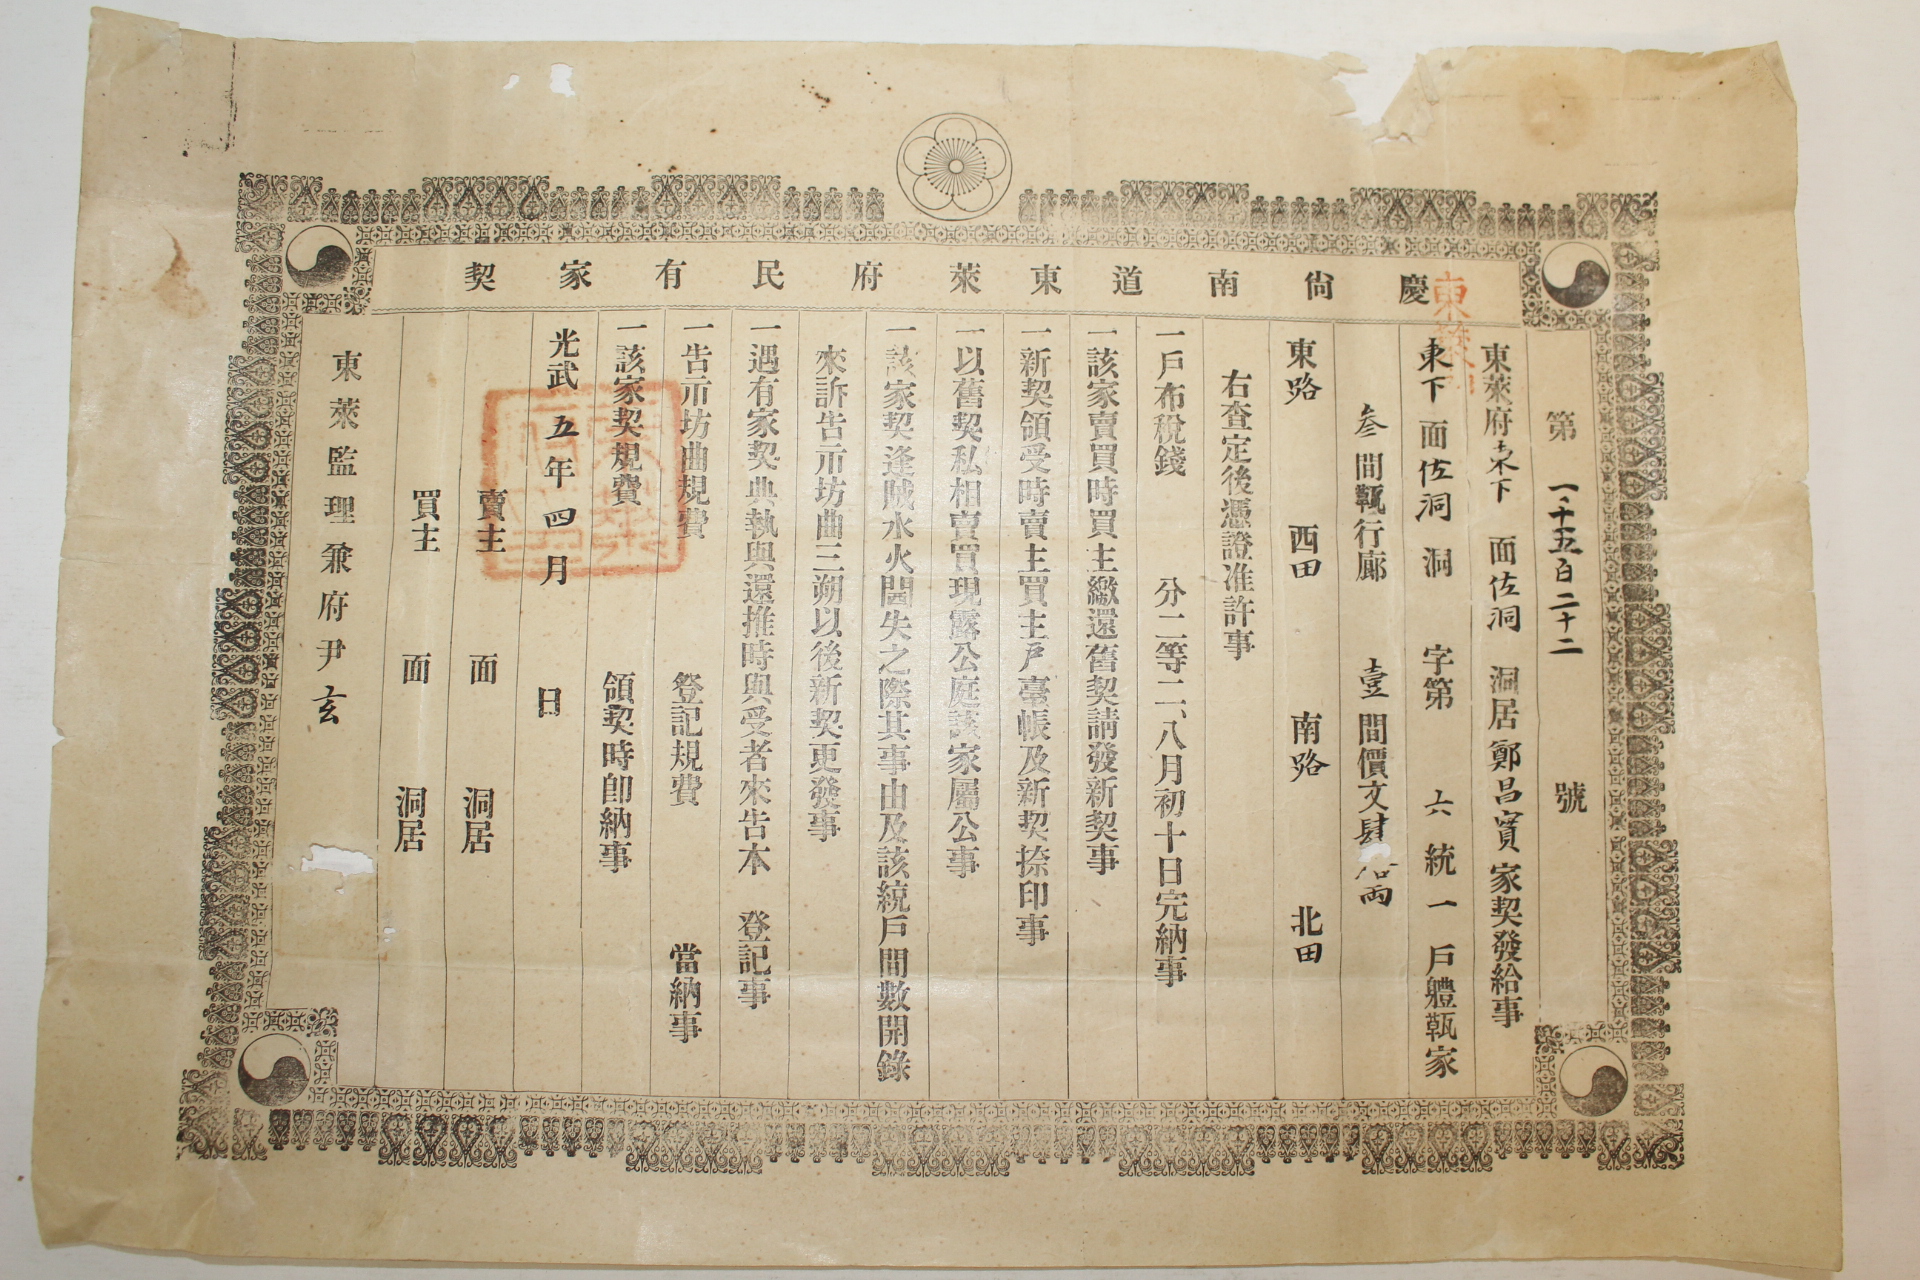 慶尙南道東萊府民有家契
第一千五百二十二號
東萊府東下面佐洞洞居鄭昌寶家契發給事
東下面佐洞洞字第六統一戶軆瓾家
叄間瓾行廊壹間價文肆 兩
東路 西田 南路 北田
右查定後憑證准許事
一戶布稅錢 分二等二、八月初十日完納事
一該家賣買時買主繳還舊契請發新契事
一新契領受時賣主買主戶臺帳及新契捺印事
一以舊契私相賣買現露公庭該家屬公事
一該家契逢賊水火閪失之際其事由及該統戶間數開錄
來訴告示坊曲三朔以後新契更發事
一遇有家契典執與還推時與受者來告本 登記事
一告示坊曲規費 登記規費 當納事
一該家契規費 領契時卽納事
光武五年四月 日
賣主 面 洞居
買主 面 洞居
東萊監理兼府尹玄